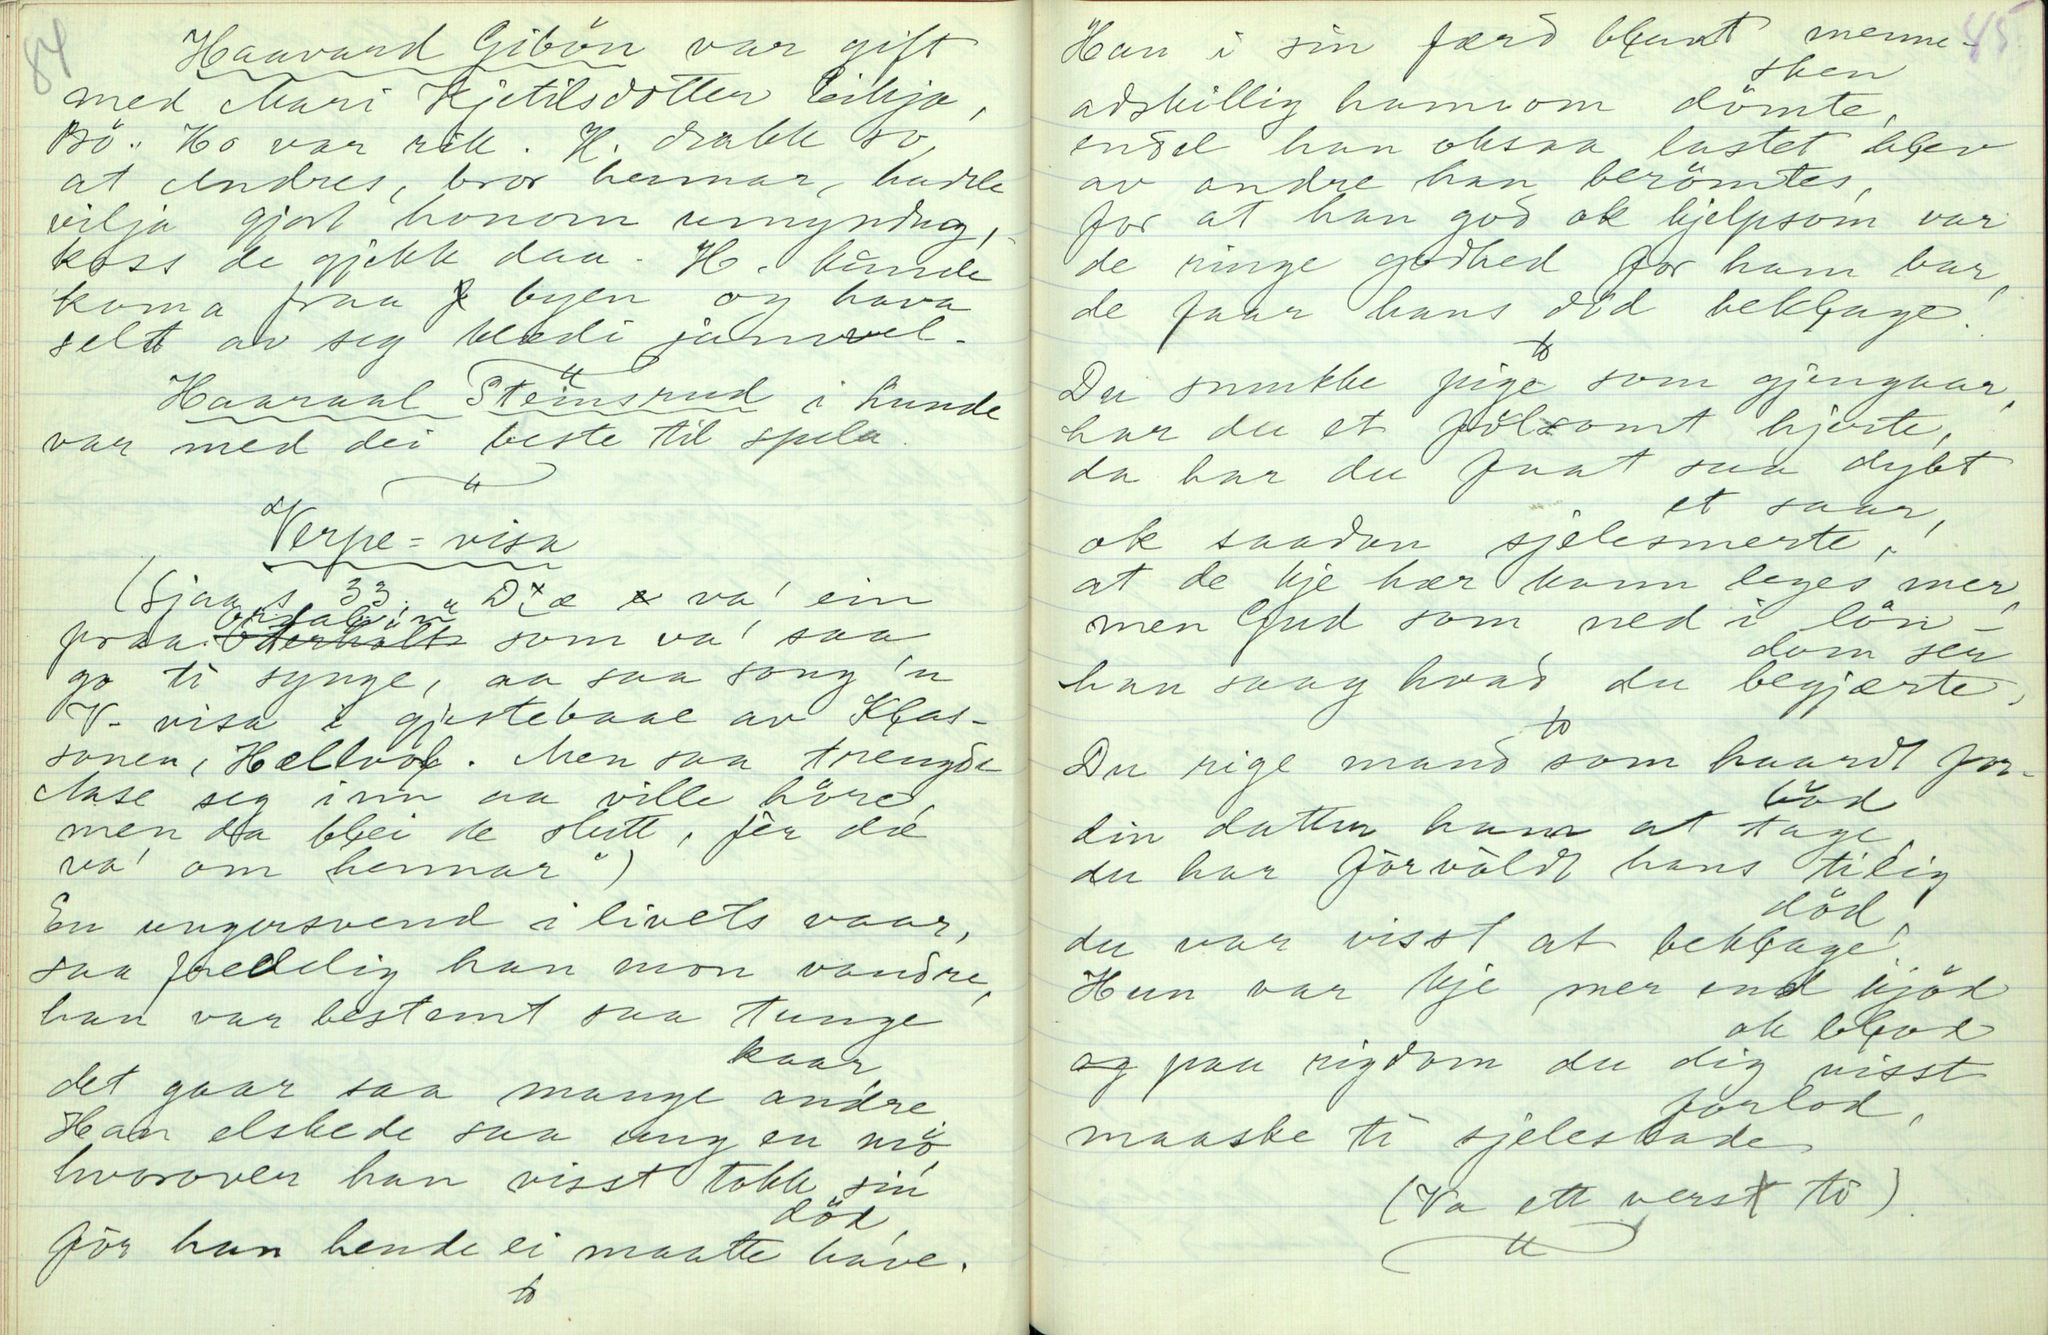 84
Haavard Gibön var gift
med Mari Kjetilsdotter Eikja,
Bö. Ho var rik. H. drakk so,
at Andres, bror hennar, hadde
vilja gjort honom umyndug,
koss de gjekk daa. H. kunde
koma fraa byen og hava
selt av seg klædi jamvel.
Haaraal Steinsrud i Lunde
var med dei beste til spela.
Verpe-visa
(Sjaa s 33. "Dæ va' ein
fraa som va' saa
go ti synge, aa saa song 'n
V- visa i gjestebaae av Klas-
sonen, Hællvof. Men saa trengde
Aase seg inn aa ville höre,
men da blei de slutt, fèr dæ
va' om hennar")
En ungersvend i livets vaar,
saa fredelig han mon vandre,
han var bestemt saa tunge
kaar
det gaar saa mange andre.
Han elskede saa ung en mö,
hvorover han visst tokk sin
död,
för han hende ei maatte have.
45
Han i sin færd blant menne-
sken
adskillig ham om dömte,
endel han oksaa lastet blev
av andre han berömtes,
for at han god ok hjelpsom var
de ringe godhed for ham bar,
de faar hans död beklage.
Du smukke pige som gjengaar,
har du et fölsomt hjerte,
da har du faat saa dybt
et saar,
ok saadan sjelesmerte,
at de kje hær kann leges mer,
men Gud som ned i lön-
dom ser
han saag hvad du begjærte,
Du rige mand som haardt for-
böd
din datter ham at tage,
du har forvoldt hans tilig
död,
du var visst at beklage.
Hun var kje mer end kjöd
ok blod
og paa rigdom du dig visst
forlod,
maaske ti sjelesbade
(Va ett vers ti)